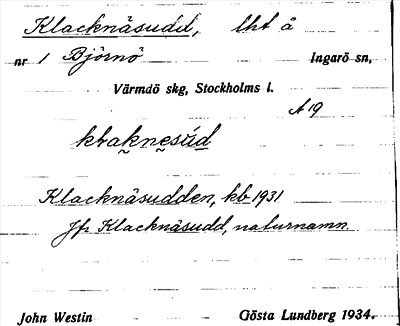 Klacknäsudd, lht å
nr 1 Björnö Ingarö sn,
Värmdö skg, Stockholms l.
A 19
Klacknäsudden, kb 1931
Jfr Klacknäsudd, naturnamn.
John Westin Gösta Lundberg 1934.